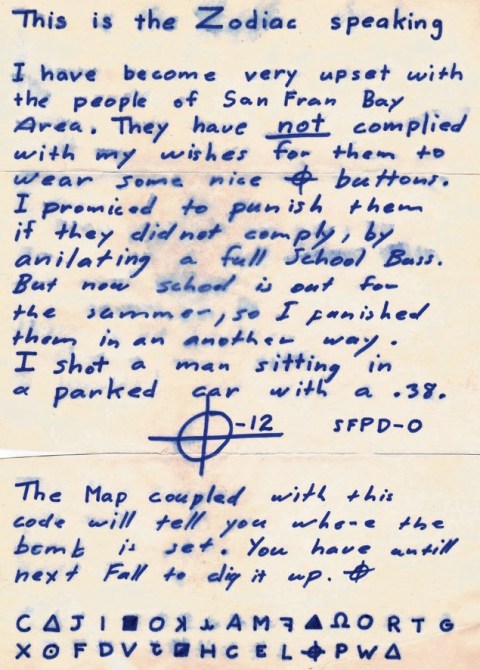 This is the Zodiac speaking
I have become very upset with
the people of San Fran Bay
Area. They have not complied
with my wishes for them to
wear some nice ⌖ buttons.
I promiced to punish them
if they did not comply, by
anilating a full School Buss.
But now school is out for
the summer, so I punished
them in an another way.
I shot a man sitting in
a parked car with a .38.
⌖-12 SFPD-0
The Map coupled with this
code will tell you where the
bomb is set. You have antill
next Fall to dig it up. ⌖
C Δ J I ■ O ꓘ ⅄ A M ꟻ ▲ Ω O R T G
X ⊙ F D V Ɛ ■ H C E L ⌖ P W Δ